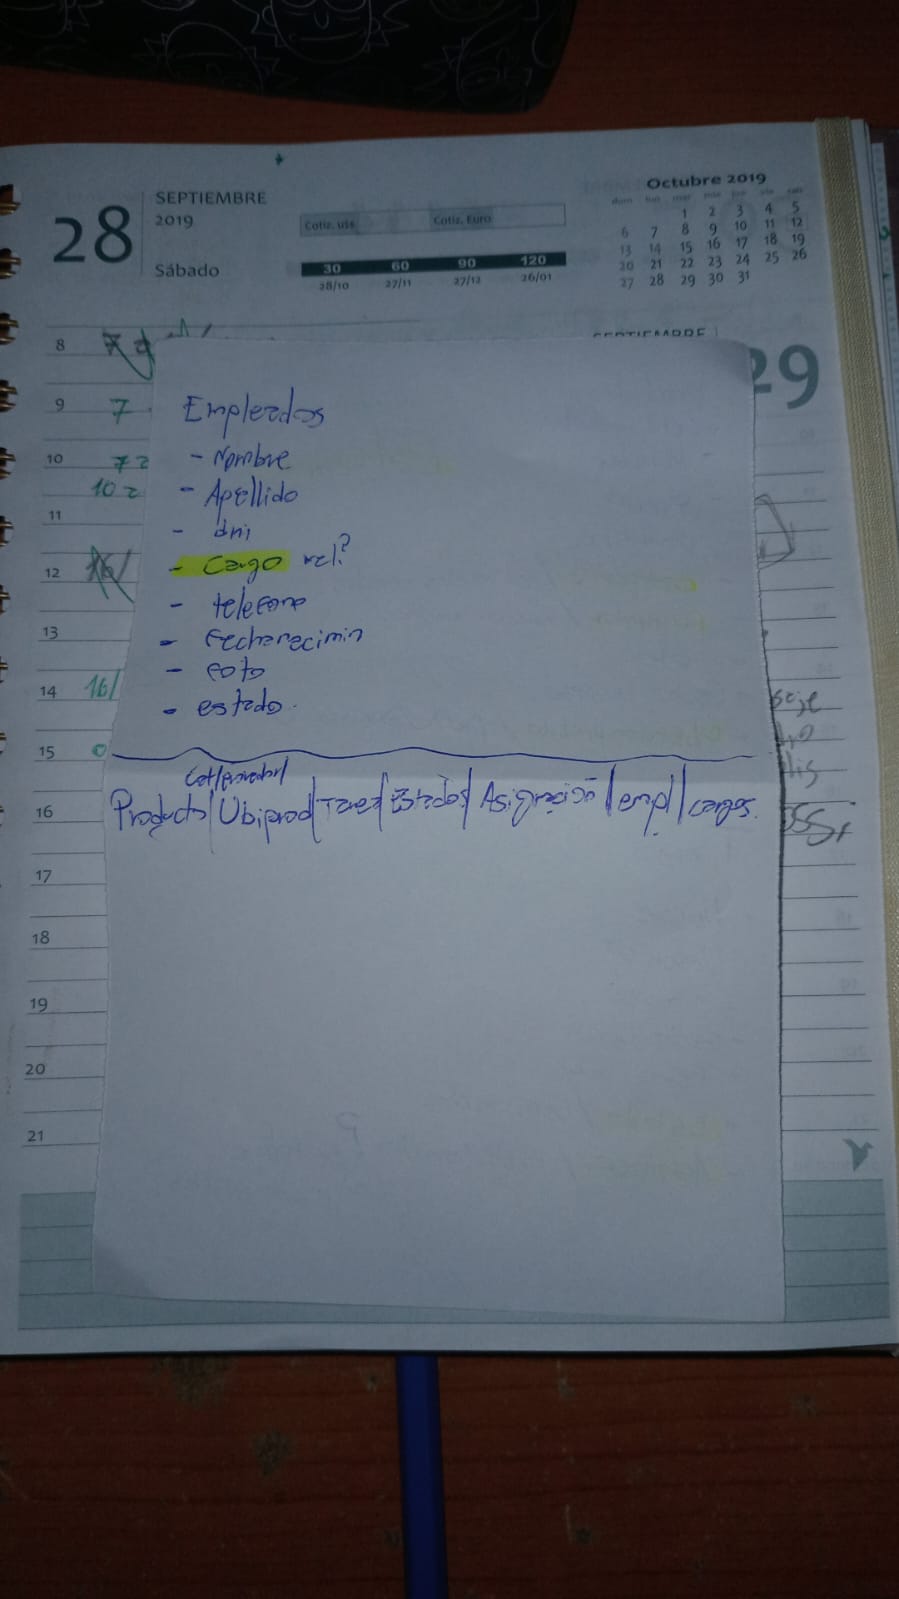 28
SEPTIEMBRE
2019
Sábado
Cotiz. u$s
Cotiz. Euro
30 60 90 120
28/10 27/11 27/12 26/01
Octubre 2019
dom lun mar mié jue vie sáb
1 2 3 4 5
6 7 8 9 10 11 12
13 14 15 16 17 18 19
20 21 22 23 24 25 26
27 28 29 30 31
SEPTIEMBRE
29
8
9 7
10 72
10 2
11
12 16/
13
14 16/
15 0
16
17
18
19
20
21
Empleados
- Nombre
- Apellido
- dni
- Cargo rel?
- telefono
- Fechanacimin
- Foto
- estado.
Producto/Ubiprod/Tarea/Estados/Asignación/empl/cargos.